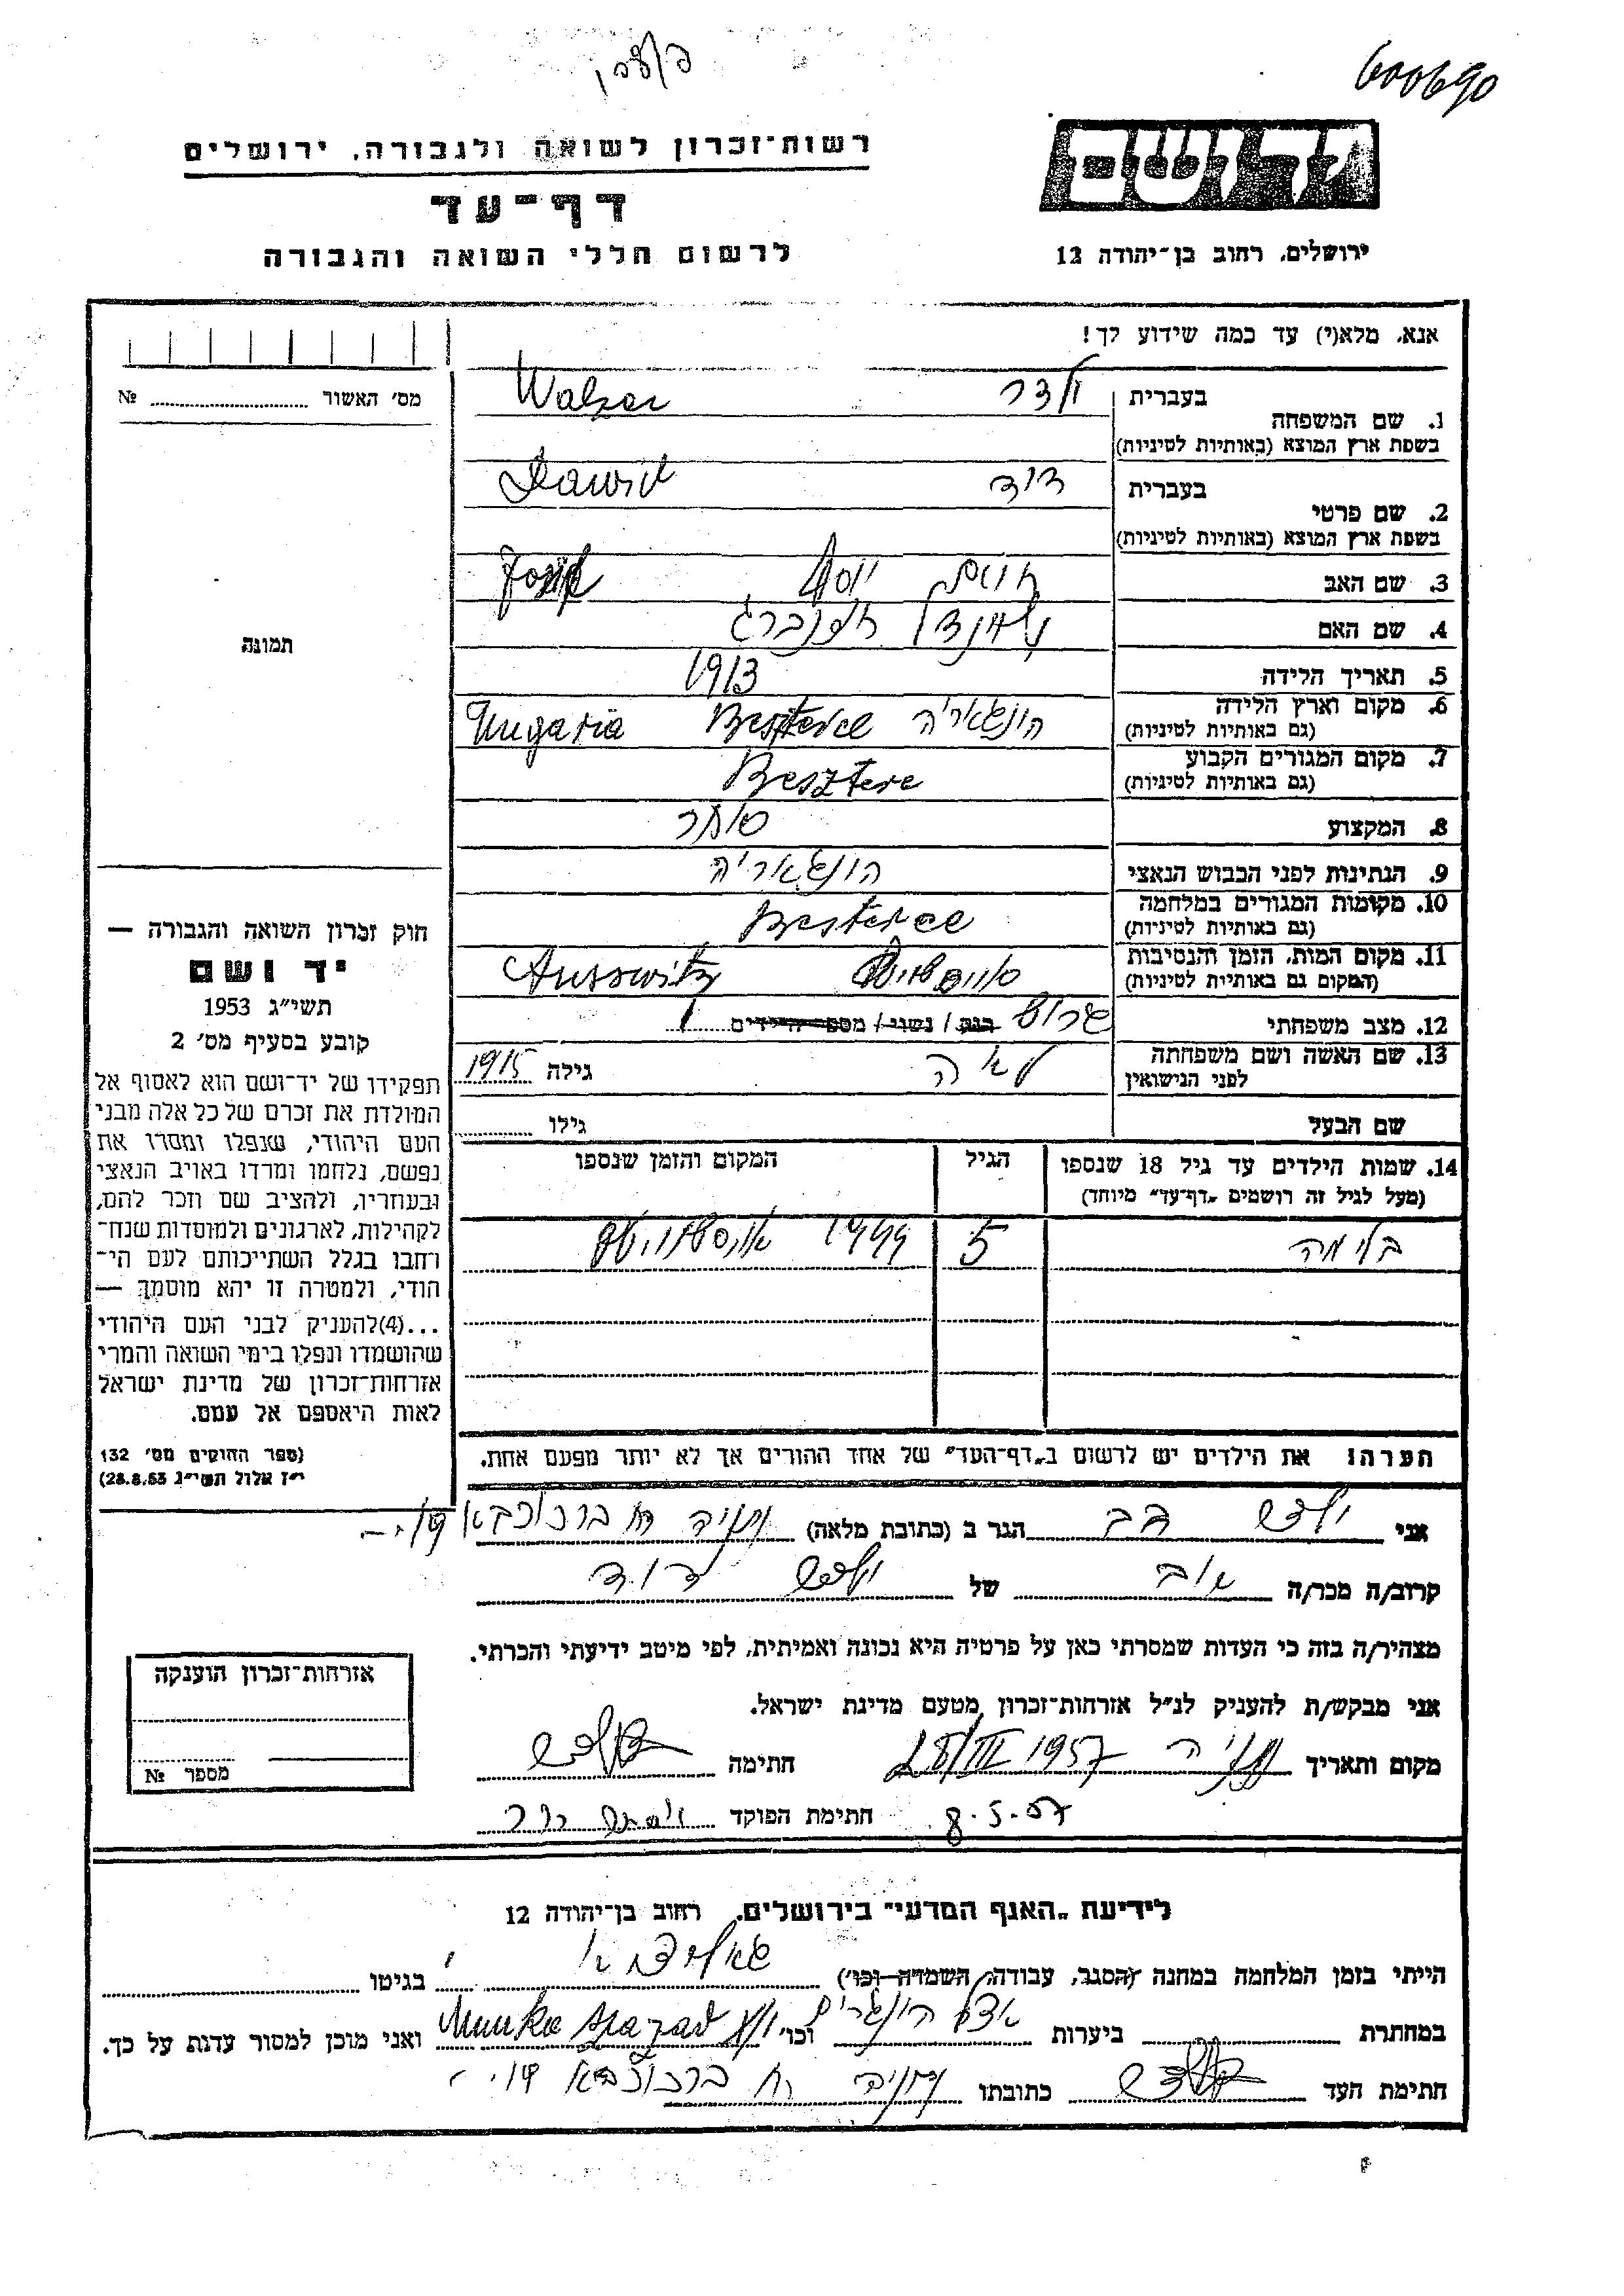 600690
רשות־זכרון לשואה ולגבורה, ירושלים
יד ושם
דף־עד
לרשום חללי השואה והגבורה
ירושלים, רחוב בן־יהודה 12
אנא, מלא(י) עד כמה שידוע לך!
בעברית ולצר Walzer
1. שם המשפחה
בשפת ארץ המוצא (באותיות לטיניות)
בעברית דוד Dawid
2. שם פרטי
בשפת ארץ המוצא (באותיות לטיניות)
3. שם האב חיים יוסף
4. שם האם
5. תאריך הלידה 1913
6. מקום וארץ הלידה הונגאריה Beszterce Hungaria
(גם באותיות לטיניות)
7. מקום המגורים הקבוע Besztere
(גם באותיות לטיניות)
8. המקצוע סוחר
9. הנתינות לפני הכבוש הנאצי הונגאריה
10. מקומות המגורים במלחמה Besterce
(גם באותיות לטיניות)
11. מקום המות, הזמן והנסיבות Auswitz
(המקום גם באותיות לטיניות)
12. מצב משפחתי רווק / נשוי / מספר הילדים 1
13. שם האשה ושם משפחתה לאה גילה 1915
לפני הנישואין
שם הבעל גילו
14. שמות הילדים עד גיל 18 שנספו הגיל המקום והזמן שנספו
(מעל לגיל זה רושמים „דף־עד" מיוחד)
בלימה 5 1944 אושוויץ
הערה: את הילדים יש לרשום ב„דף־העד" של אחד ההורים אך לא יותר מפעם אחת.
מס' האשור №
תמונה
חוק זכרון השואה והגבורה —
יד ושם
תשי"ג 1953
קובע בסעיף מס' 2
תפקידו של יד־ושם הוא לאסוף אל
המולדת את זכרם של כל אלה מבני
העם היהודי, שנפלו ומסרו את
נפשם, נלחמו ומרדו באויב הנאצי
ובעוזריו, ולהציב שם וזכר להם,
לקהילות, לארגונים ולמוסדות שנח־
רחבו בגלל השתייכותם לעם הי־
הודי, ולמטרה זו יהא מוסמך —
...(4)להעניק לבני העם היהודי
שהושמדו ונפלו בימי השואה והמרי
אזרחות־זכרון של מדינת ישראל
לאות היאספם אל עמם.
(ספר החוקים מס' 132
י"ז אלול תשי"ג 28.8.53)
אני ולצר הגר ב (כתובת מלאה) נתניה רח ברכוכבא 19
קרוב/ה מכר/ה אח של ולצר דוד
מצהיר/ה בזה כי העדות שמסרתי כאן על פרטיה היא נכונה ואמיתית, לפי מיטב ידיעתי והכרתי.
אני מבקש/ת להעניק לנ"ל אזרחות־זכרון מטעם מדינת ישראל.
מקום ותאריך נתניה 1957 חתימה
8.5.57 חתימת הפוקד
אזרחות־זכרון הוענקה
מספר №
לידיעת „האגף המדעי" בירושלים, רחוב בן־יהודה 12
הייתי בזמן המלחמה במחנה (הסגר, עבודה, השמדה וכו') בגיטו
במחתרת ביערות וכו' Munka ואני מוכן למסור עדות על כך.
חתימת העד כתובתו נתניה רח ברכוכבא 19